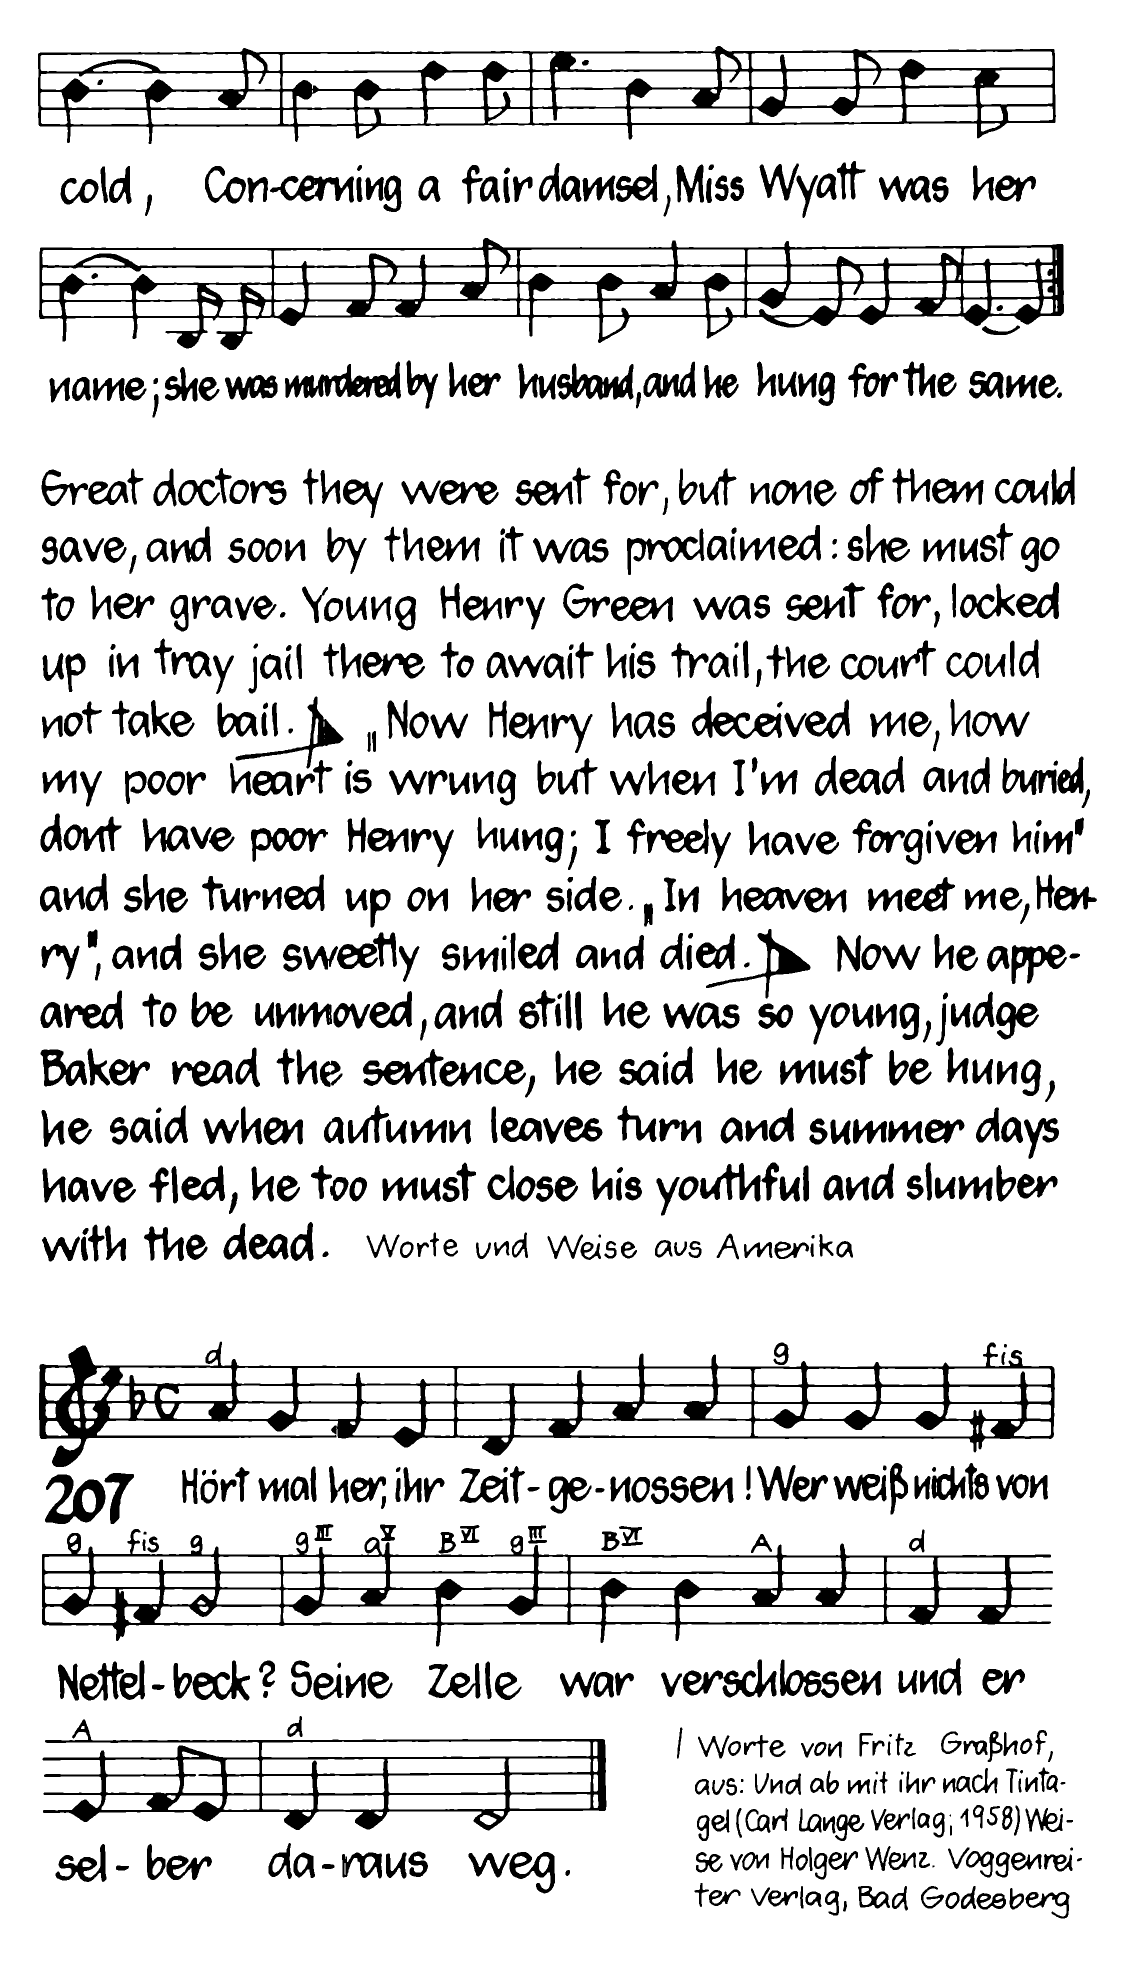 cold, Con-cerning a fair damsel, Miss Wyatt was her
name; she was murdered by her husband, and he hung for the same.
Great doctors they were sent for, but none of them could
save, and soon by them it was proclaimed: she must go
to her grave. Young Henry Green was sent for, locked
up in tray jail there to await his trail, the court could
not take bail. „Now Henry has deceived me, how
my poor heart is wrung but when I'm dead and buried,
dont have poor Henry hung; I freely have forgiven him"
and she turned up on her side. „In heaven meet me, Hen-
ry", and she sweetly smiled and died. Now he appe-
ared to be unmoved, and still he was so young, judge
Baker read the sentence, he said he must be hung,
he said when autumn leaves turn and summer days
have fled, he too must close his youthful and slumber
with the dead. Worte und Weise aus Amerika
d g fis
207 Hört mal her, ihr Zeit-ge-nossen! Wer weiß nichts von
g fis g g III a V B VI g III B VI A d
Nettel-beck? Seine Zelle war verschlossen und er
A d
sel-ber da-raus weg.
Worte von Fritz Graßhof,
aus: Und ab mit ihr nach Tinta-
gel (Carl Lange Verlag; 1958) Wei-
se von Holger Wenz. Voggenrei-
ter Verlag, Bad Godesberg